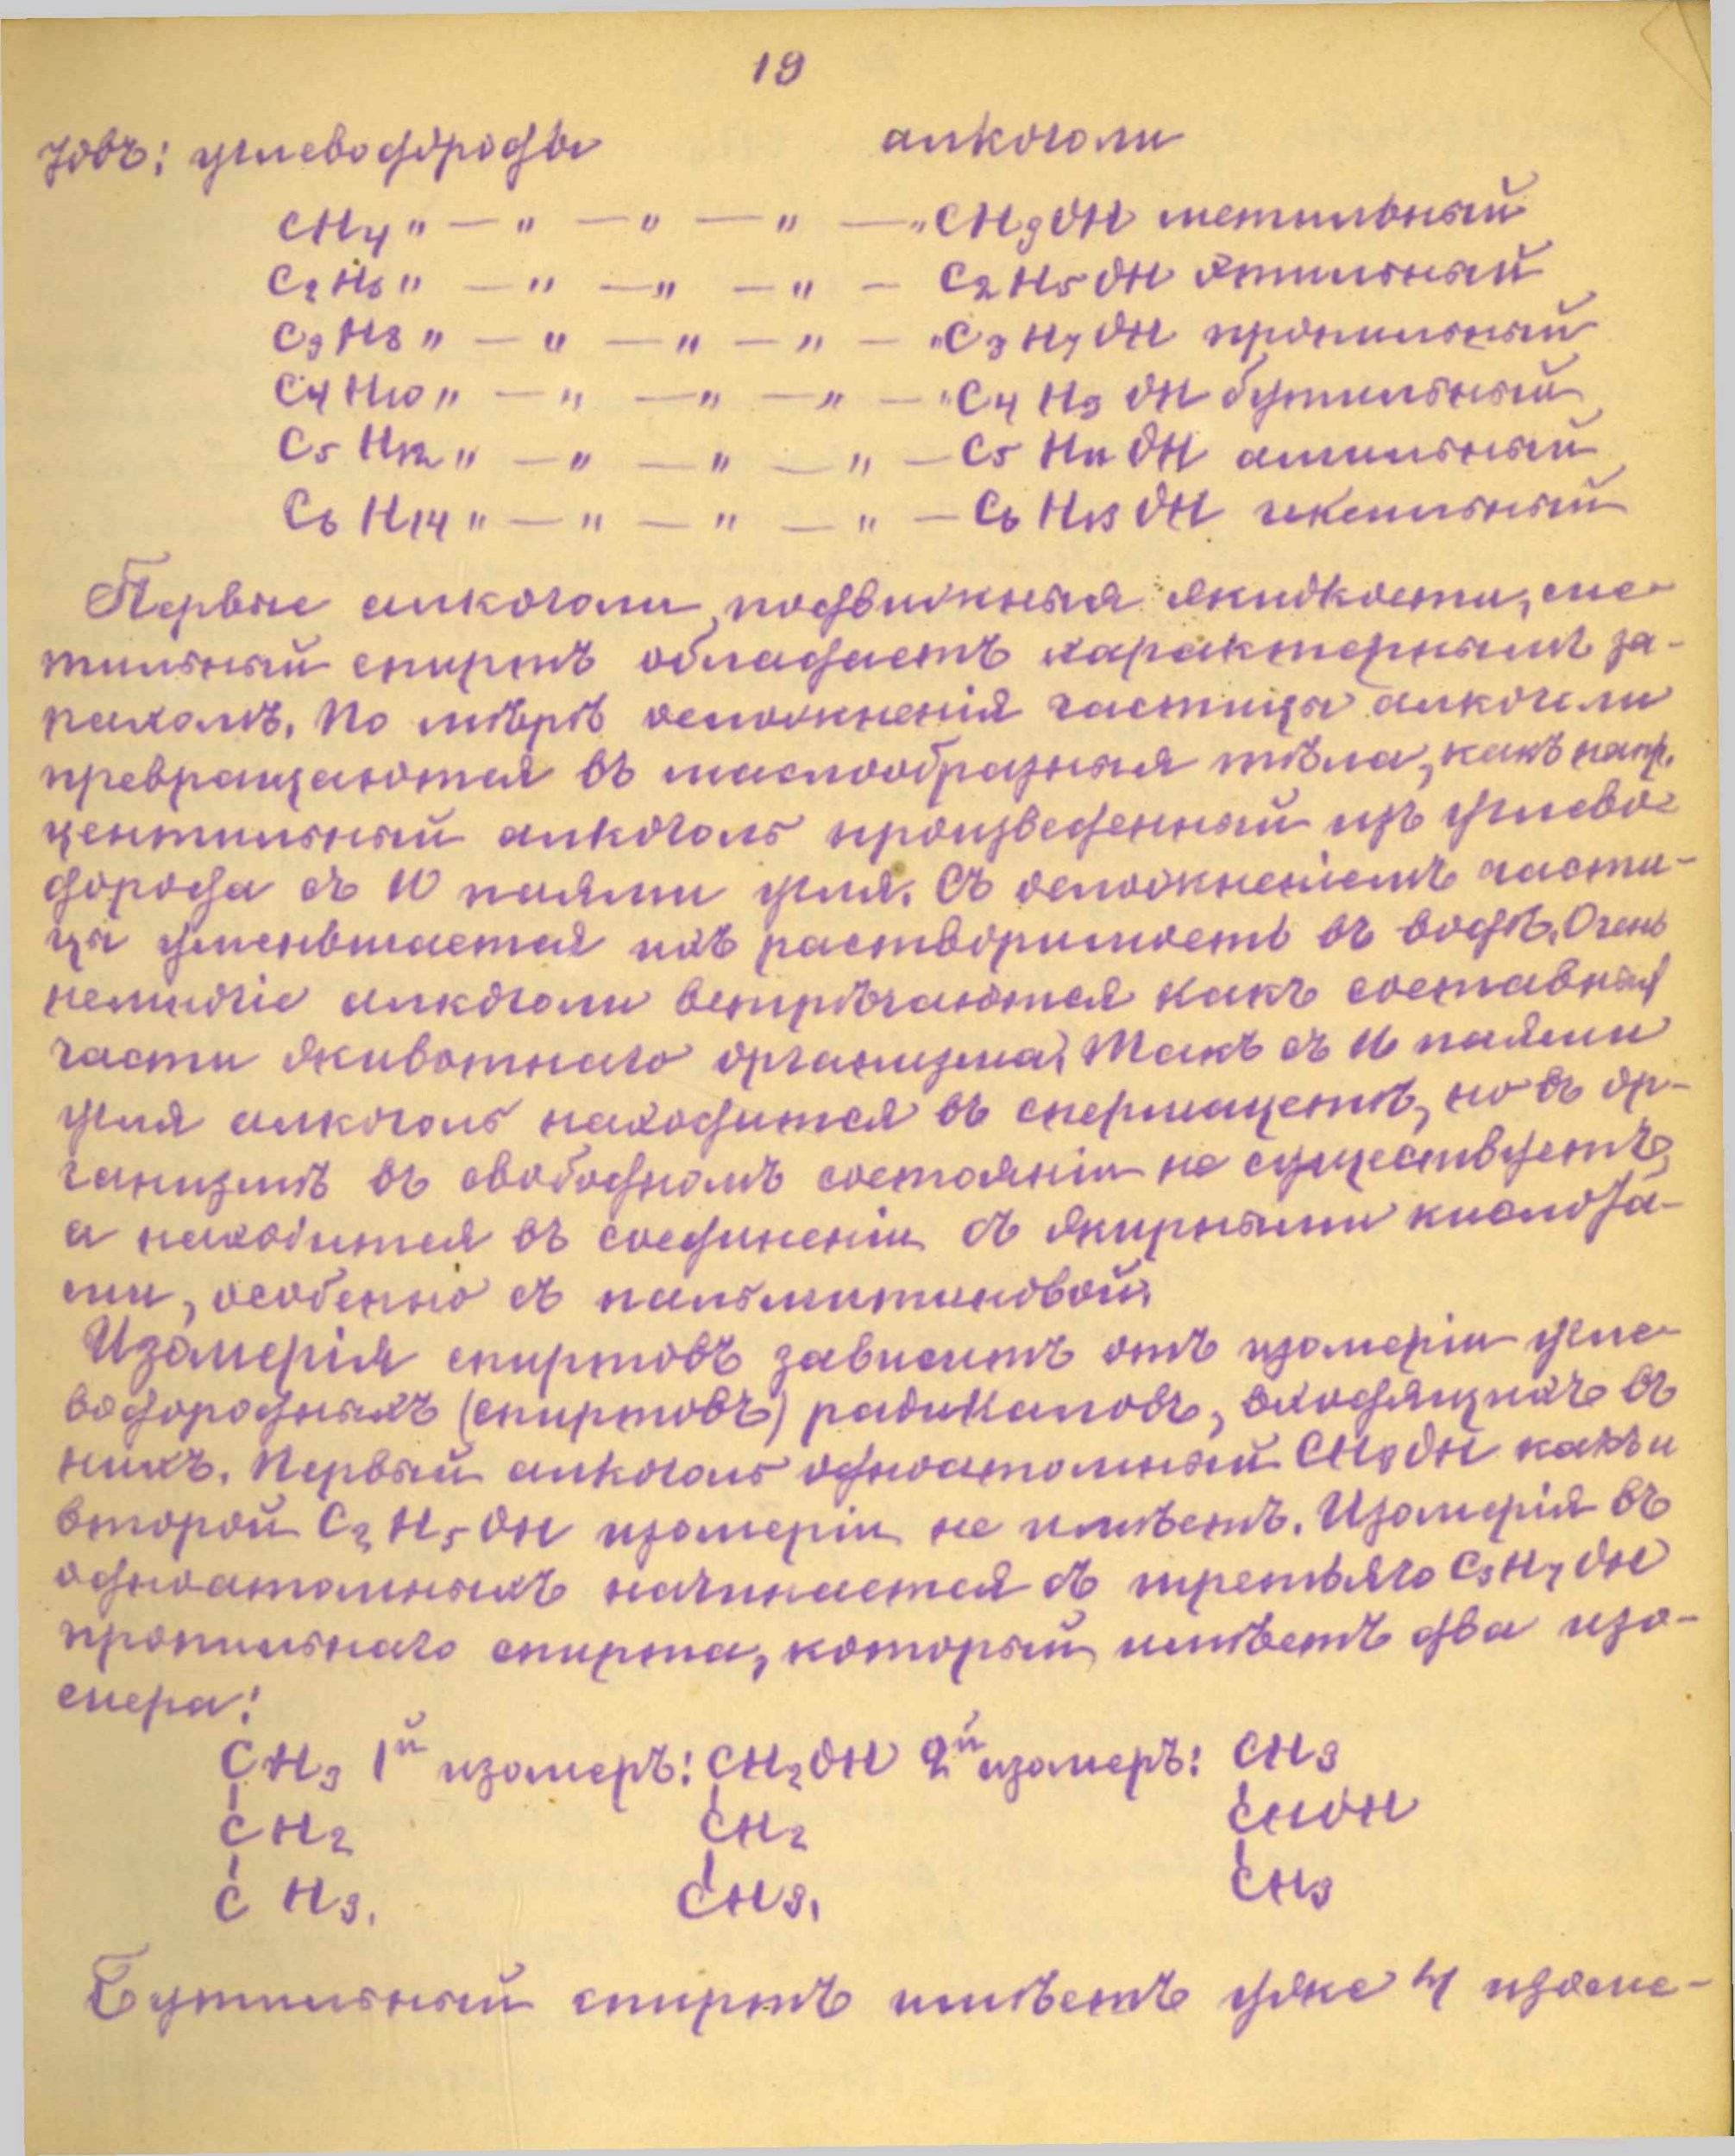 19
довъ: углеводороды алкоголи
CH4 „ — „ — „ — „ — „ CH3OH метильный
C2H6 „ — „ — „ — „ — C2H5OH этильный
C3H8 „ — „ — „ — „ — „ C3H7OH пропильный
C4H10 „ — „ — „ — „ — „ C4H9OH бутильный
C5H12 „ — „ — „ — „ — C5H11OH амильный
C6H14 „ — „ — „ — „ — C6H13OH гексильный
Первые алкоголи, подвижныя жидкости, ме-
тильный спиртъ обладаетъ характернымъ за-
пахомъ. По мѣрѣ осложненія частицы алкоголи
превращаются въ маслообразныя тѣла, какъ напр.
центильный алкоголь произведенный изъ углево-
дорода съ 10 паями угля. Съ осложненіемъ части-
цы уменьшается ихъ растворимость въ водѣ. Очень
немногіе алкоголи встрѣчаются какъ составныя
части животнаго организма. Такъ съ 16 паями
угля алкоголь находится въ спермацетѣ, но въ ор-
ганизмѣ въ свободномъ состояніи не существуетъ,
а находится въ соединеніи съ жирными кислота-
ми, особенно съ пальмитиновой.
Изомерія спиртовъ зависитъ отъ изомеріи угле-
водородныхъ (спиртовъ) радикаловъ, входящихъ въ
нихъ. Первый алкоголь одноатомный CH3OH какъ и
второй C2H5OH изомеріи не имѣетъ. Изомерія въ
одноатомныхъ начинается съ третьяго C3H7OH
пропильнаго спирта, который имѣетъ два изо-
мера:
CH3 1й изомеръ: CH2OH 2й изомеръ: CH3
CH2 CH2 CHOH
CH3. CH3. CH3
Бутильный спиртъ имѣетъ уже 4 изоме-